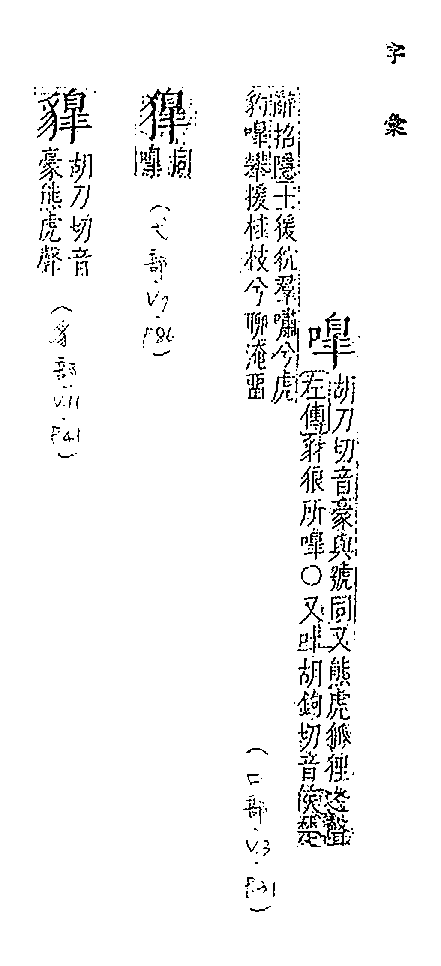 字彙
嘷
胡刀切音豪與號同又熊虎狐狸聲
左傳豺狼所嘷○又叶胡鉤切音侯楚
辭招隱士猨狖羣嘯兮虎
豹嘷攀援桂枝兮聊淹畱
(口部.V.3.P.31)
獋
同
嘷
(犬部.V.7.P.86)
胡刀切音
豪熊虎聲
(豸部.V.11.P.41)